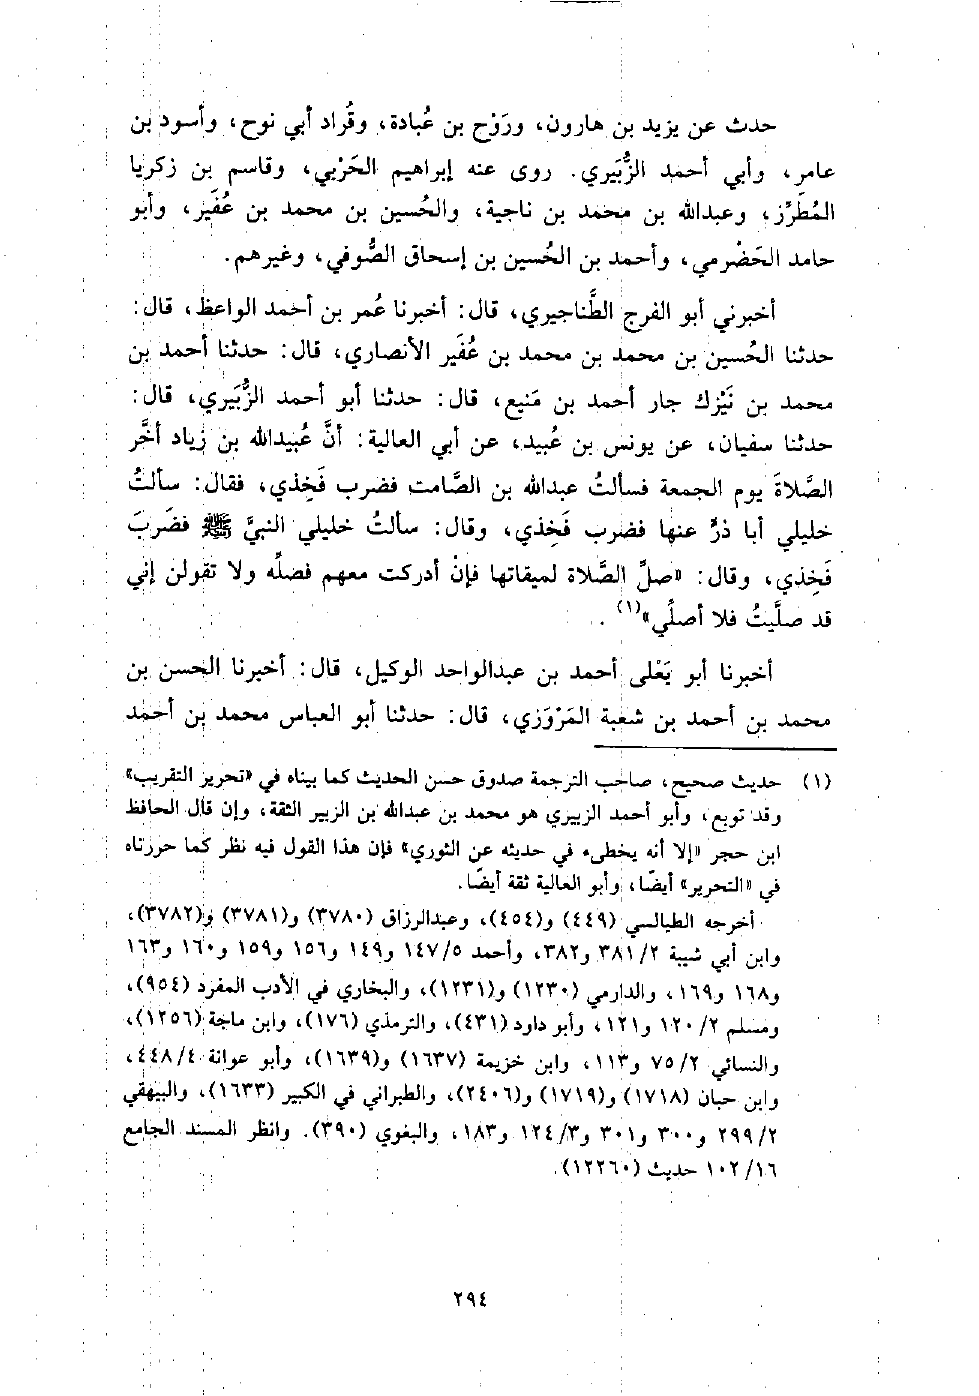 حدث عن يزيد بن هارون، ورَوْح بن عُبادة، وقُراد أبي نوح، وأسود بن
عامر، وأبي أحمد الزُّبَيري. روى عنه إبراهيم الحَرْبي، وقاسم بن زكريا
المُطَرِّز، وعبدالله بن محمد بن ناجية، والحُسين بن محمد بن عُفَير، وأبو
حامد الحَضْرمي، وأحمد بن الحُسين بن إسحاق الصُّوفي، وغيرهم.
أخبرني أبو الفرج الطَّناجيري، قال: أخبرنا عُمر بن أحمد الواعظ، قال:
حدثنا الحُسين بن محمد بن محمد بن عُفَير الأنصاري، قال: حدثنا أحمد بن
محمد بن نَيْزك جار أحمد بن مَنيع، قال: حدثنا أبو أحمد الزُّبَيري، قال:
حدثنا سفيان، عن يونس بن عُبيد، عن أبي العالية: أنَّ عُبيدالله بن زياد أخَّر
الصَّلاةَ يوم الجمعة فسألتُ عبدالله بن الصَّامت فضرب فَخِذي، فقال: سألتُ
خليلي أبا ذرٍّ عنها فضرب فَخِذي، وقال: سألتُ خليلي النبيَّ ﷺ فضَربَ
فَخِذي، وقال: «صلِّ الصَّلاة لميقاتها فإنْ أدركت معهم فصلِّه ولا تقولن إني
قد صلَّيتُ فلا أصلِّي»(١).
أخبرنا أبو يَعْلى أحمد بن عبدالواحد الوكيل، قال: أخبرنا الحسن بن
محمد بن أحمد بن شعبة المَرْوَزي، قال: حدثنا أبو العباس محمد بن أحمد
(١) حديث صحيح، صاحب الترجمة صدوق حسن الحديث كما بيناه في «تحرير التقريب»
وقد توبع، وأبو أحمد الزبيري هو محمد بن عبدالله بن الزبير الثقة، وإن قال الحافظ
ابن حجر «إلا أنه يخطىء في حديثه عن الثوري» فإن هذا القول فيه نظر كما حررناه
في «التحرير» أيضًا، وأبو العالية ثقة أيضًا.
أخرجه الطيالسي (٤٤٩) و(٤٥٤)، وعبدالرزاق (٣٧٨٠) و(٣٧٨١) و(٣٧٨٢)،
وابن أبي شيبة ٢/ ٣٨١ و٣٨٢، وأحمد ٥/ ١٤٧ و١٤٩ و١٥٦ و١٥٩ و١٦٠ و١٦٣
و١٦٨ و١٦٩، والدارمي (١٢٣٠) و(١٢٣١)، والبخاري في الأدب المفرد (٩٥٤)،
ومسلم ٢/ ١٢٠ و١٢١، وأبو داود (٤٣١)، والترمذي (١٧٦)، وابن ماجة (١٢٥٦)،
والنسائي ٢/ ٧٥ و١١٣، وابن خزيمة (١٦٣٧) و(١٦٣٩)، وأبو عوانة ٤/ ٤٤٨،
وابن حبان (١٧١٨) و(١٧١٩) و(٢٤٠٦)، والطبراني في الكبير (١٦٣٣)، والبيهقي
٢/ ٢٩٩ و٣٠٠ و٣٠١ و٣/ ١٢٤ و١٨٣، والبغوي (٣٩٠). وانظر المسند الجامع
١٦/ ١٠٢ حديث (١٢٢٦٠).
٢٩٤